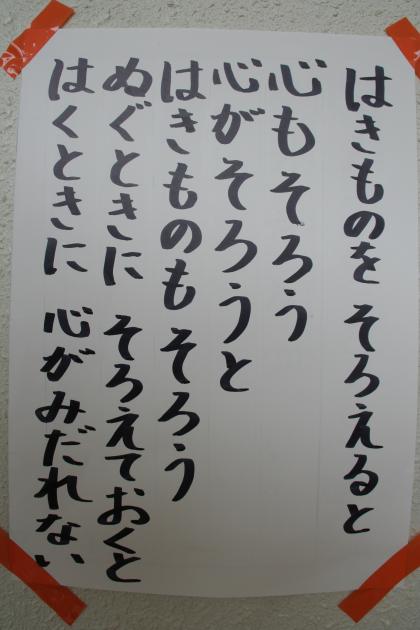 はきものを そろえると
心もそろう
心がそろうと
はきものも そろう
ぬぐときに そろえておくと
はくときに 心がみだれない